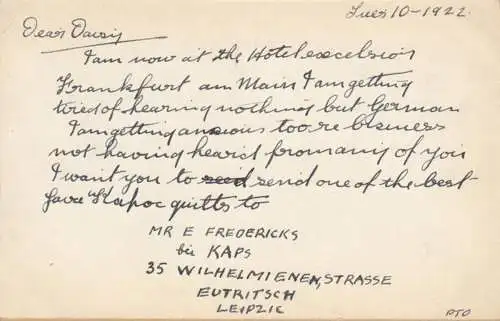 Tues 10-1922.
Dear Daisy
I am now at the Hotel excelsior
Frankfurt am Main I am getting
tired of hearing nothing but German
I am getting anxious too re bisness
not having heard from any of you
I want you to send one of the best
Java Kapoc quilts to
MR E FREDERICKS
bei KAPS
35 WILHELMIENEN, STRASSE
EUTRITSCH
LEIPZIC
PTO